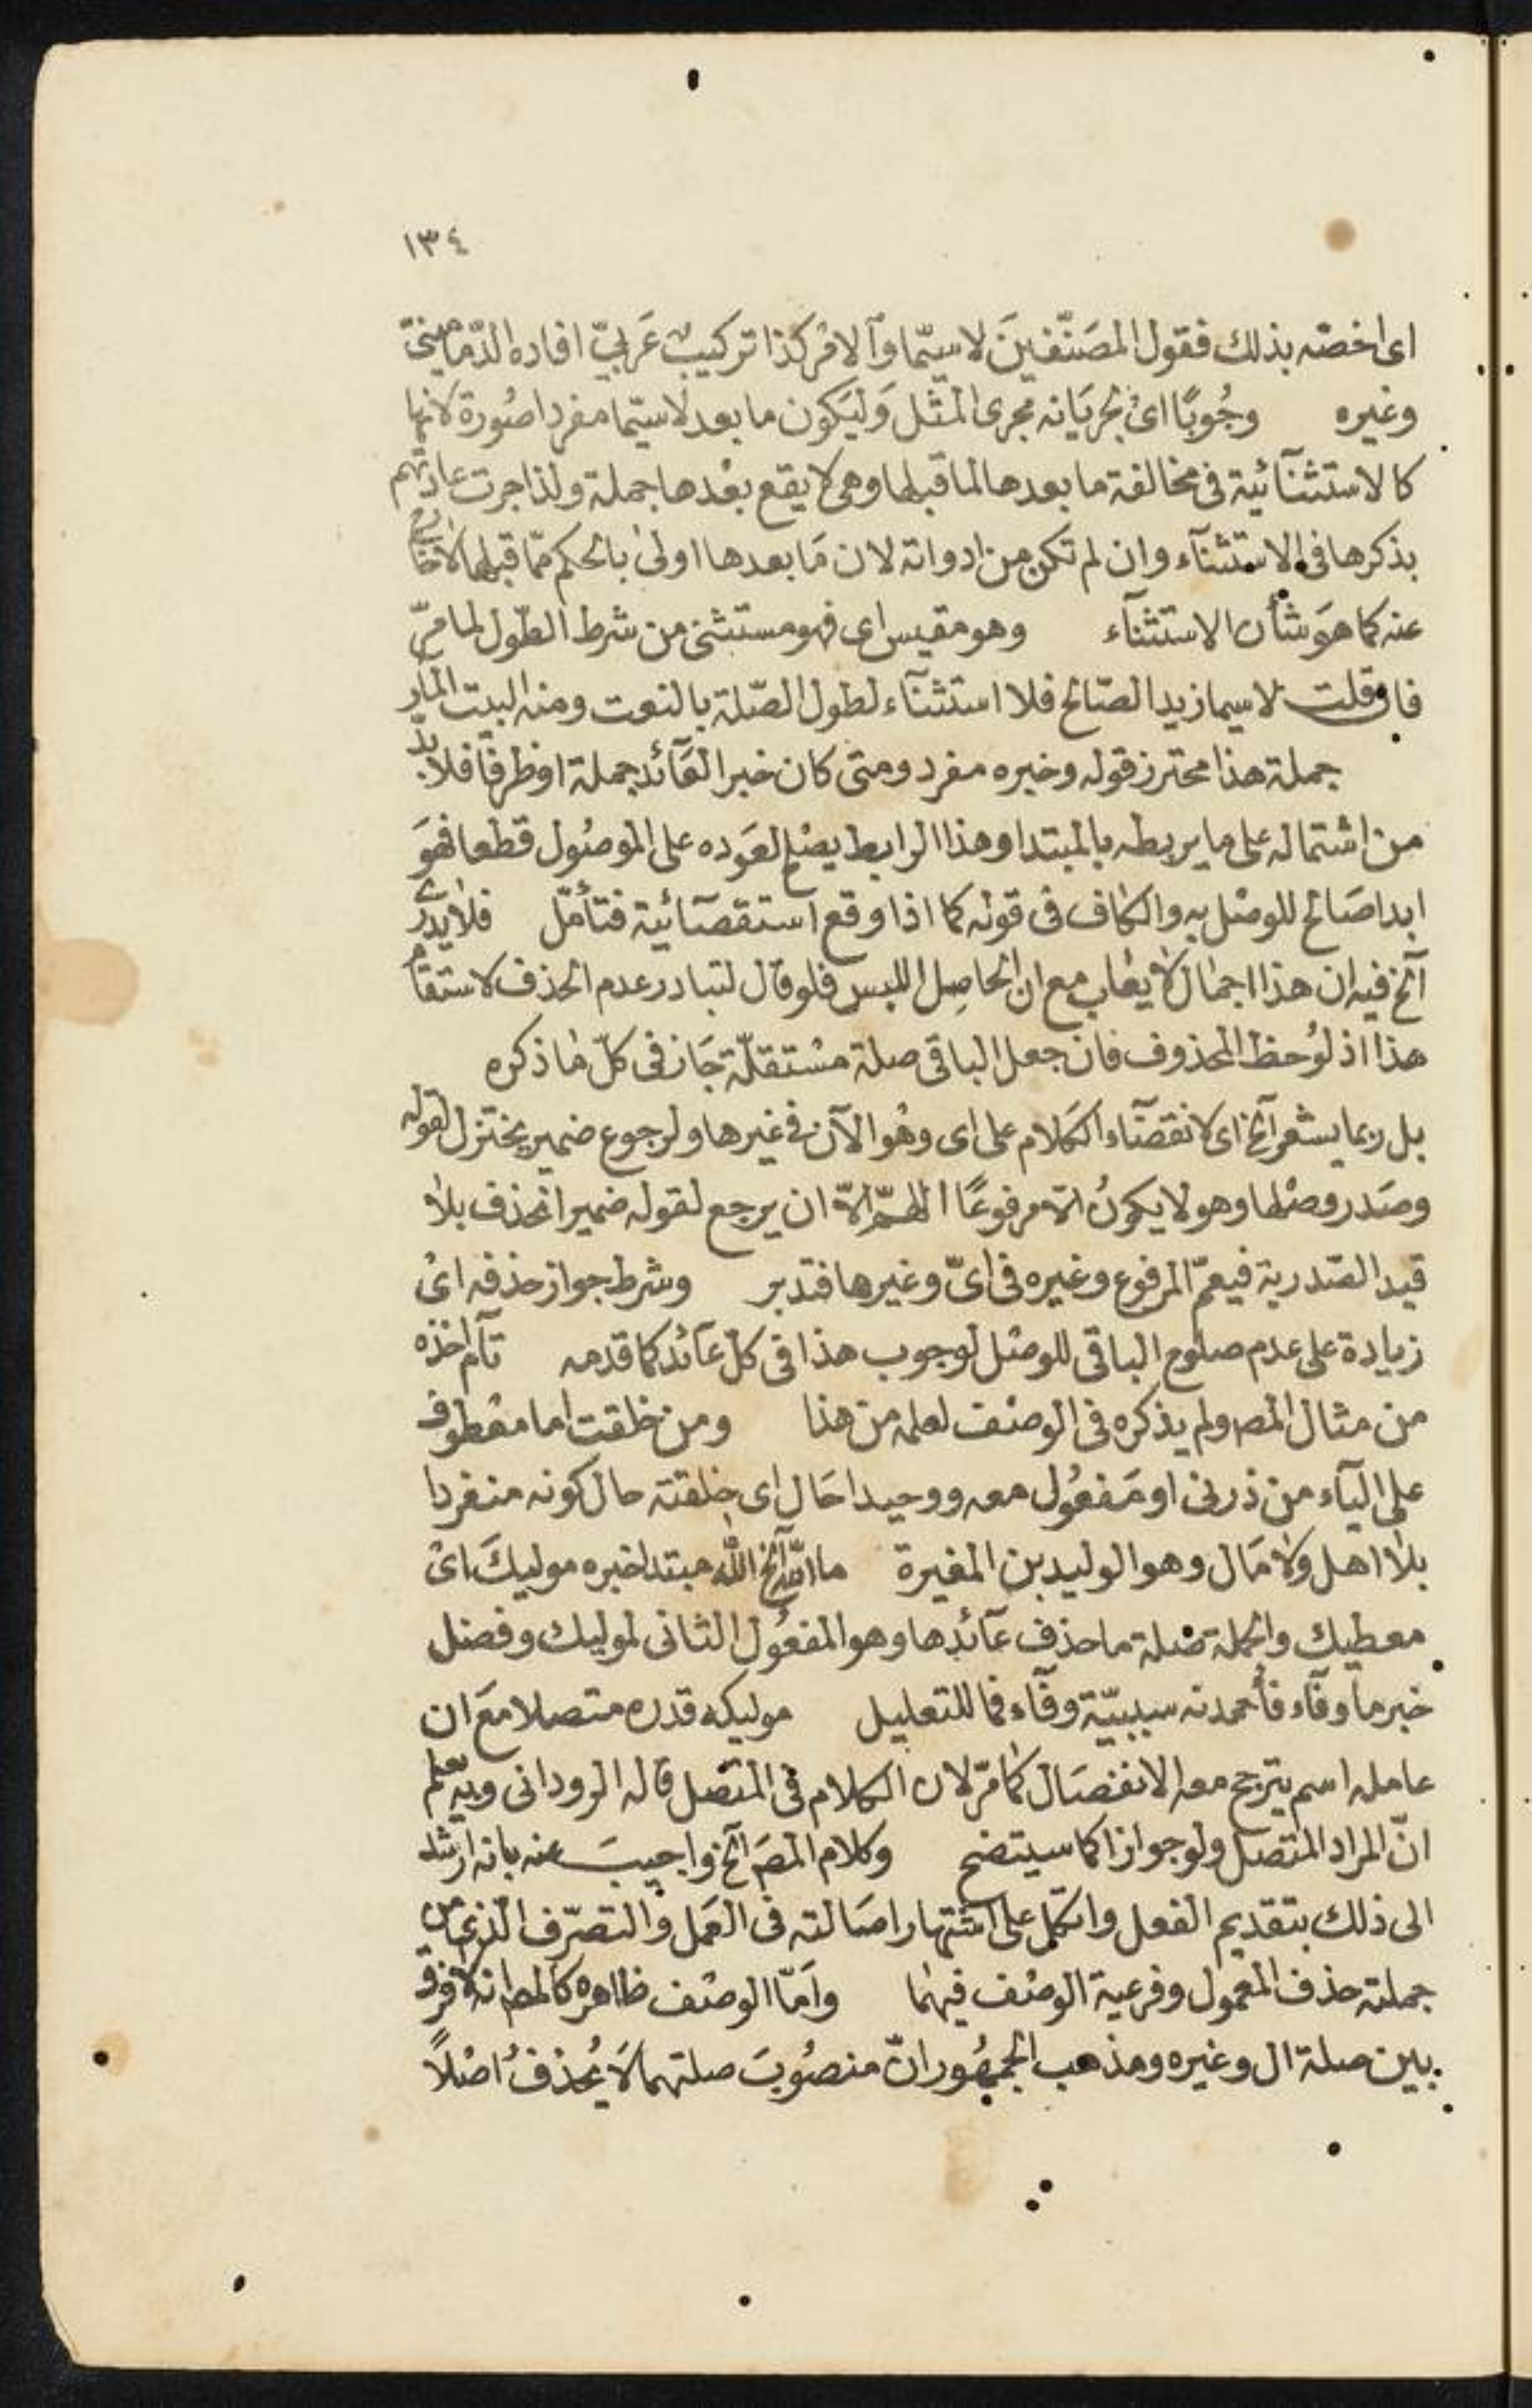 ١٣٤
اى اخصّه بذلك فقول المصَنّفينَ لاسيّما والامر كذا تركيبٌ عَربيّ افاده الدّمامينىّ
وغيره وجُوبًا اىْ لجريَانه مجرى المثل وَليَكون ما بعد لاسيّما مفردا صُورة لانها
كالاستثنآئية فى مخالفة ما بعدها لما قبلها وهى لا يقع بعْدها جملة ولذا جرت عادتهم
بذكرها فى الاستثنآء وان لم تكن من ادواته لان مَا بعدها اولىٰ بالحكم ممّا قبلها لاخارج
عنه كما هوَ شأن الاستثنآء وهو مقيس اى فهو مستثنى من شرط الطّول لما مرّ
فان قلت لاسيما زيد الصّالح فلا استثنآء لطول الصّلة بالنعت ومنه البيت المآر
جملة هذا محترز قوله وخبره مفرد ومتى كان خبر العَآئد جملة اوظرفا فلا بدّ
من اشتماله على ما يربطه بالمبتدا وهذا الرابط يصْلح لعَوده على الموصُول قطعا فهوَ
ابدا صَالح للوصْل به والكاف فى قوله كما اذا وقع استقصآئية فتأمّل فلا يدرىٰ
آلخ فيه ان هذا اجمال لا يعَاب مع ان الحاصِل اللبس فلو قال لتبادر عدم الحذف لاستقام
هذا اذ لوُحظ المحذوف فان جعل الباقى صلة مسْتقلّة جَاز فى كلّ مَا ذكره
بل ربما يشعر آلخ اى لانقضآء الكَلام على اى وهُو الآن فى غيرها ولرجوع ضمير يختزل لقوله
وصَدر وصْلها وهو لا يكونُ الاّ مرفوعًا اللهمّ الاّ ان يرجع لقوله ضمير انحذف بلا
قيد الصّدرية فيعمّ المرفوع وغيره فى اىّ وغيرها فتدبر وشرط جواز حذفه اىْ
زيادة على عدم صلوح الباقى للوصْل لوجوب هذا فى كلّ عَآئد كما قدمه تآم اخذه
من مثال المصـ ولم يذكره فى الوصْف لعلمه من هذا ومن خلقت اما معْطوف
على اليآء من ذرنى او مَفعُول معه ووحيدا حَال اى خلقته حال كونه منفردا
بلا اهل ولا مَال وهو الوليد بن المغيرة ما اللّه آلخ اللّه مبتدا خبره موليكَ اىْ
معطيك والجملة صْلة ما حذف عَآئدها وهو المفعُول الثانى لموليك وفضل
خبر ما وفآء فأحمدنه سببيّة وفآء فما للتعليل موليكه قدره متصلا معَ ان
عامله اسم يترجح معه الانفصَال كمَا مرّ لان الكلام فى المتّصل قاله الرودانى وبه تعلم
انّ المراد المتصل ولو جوازا كما سيتضح وكلام المصَ آلخ واجيبَ عنه بانه ارشد
الى ذلك بتقديم الفعل واتكل على اشتهار اصَالته فى العَمل والتصرّف الذى من
جملته حذف المعْمول وفرعية الوصْف فيهمَا وامّا الوصْف ظاهره كالمصـ انه لا فرق
بين صلة ال وغيره ومذهب الجمهُور انّ منصُوبَ صلتهما لَا يُحذفُ اصْلاً